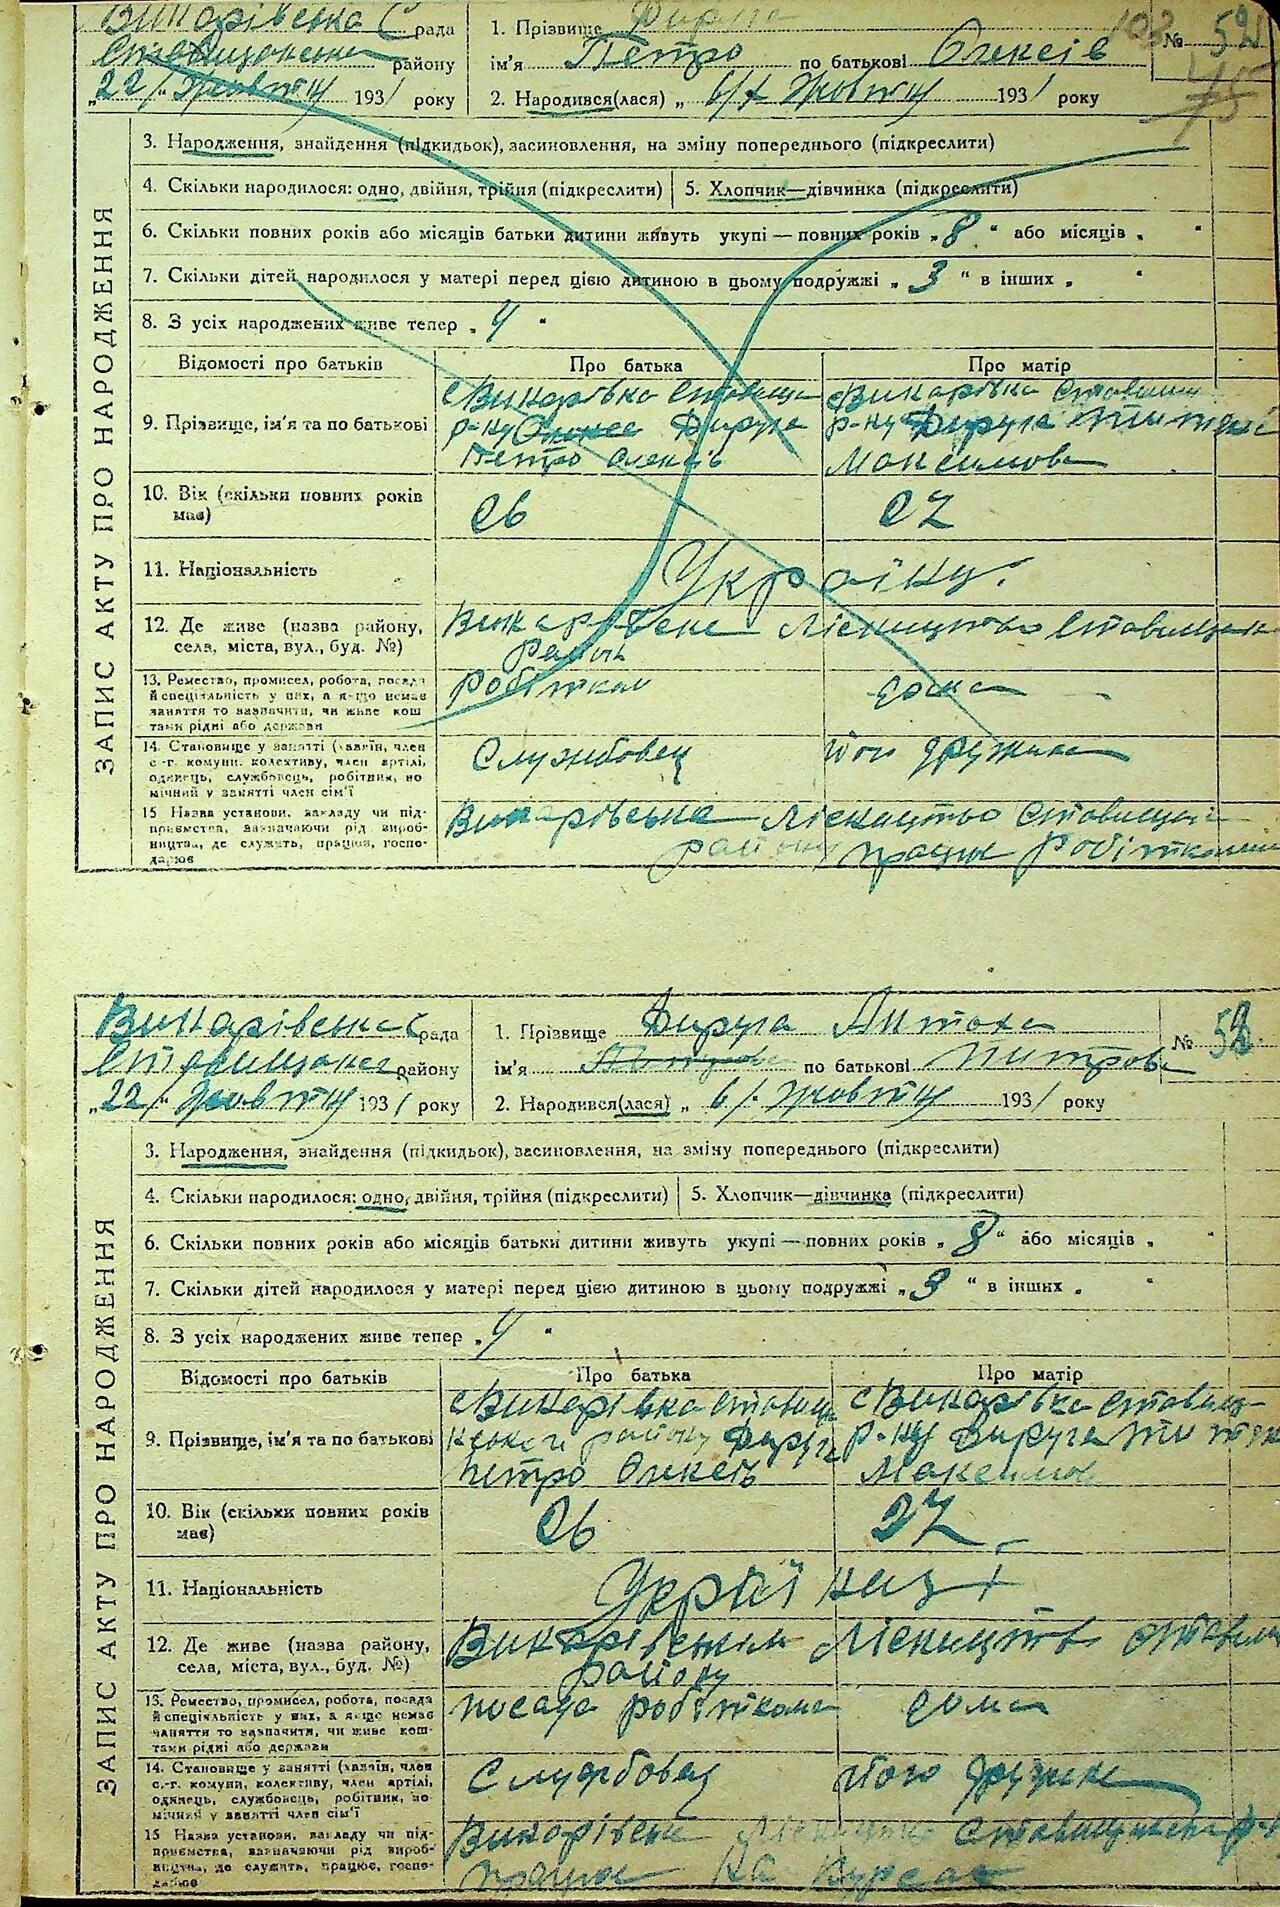 Викарівська С рада
1. Прізвище Дируга
№ 52
103
району
ім'я Петро по батькові Олексів
75
„22/" Жовтня 1931 року
2. Народився(лася) „ 6/X Жовтня 1931 року
ЗАПИС АКТУ ПРО НАРОДЖЕННЯ
3. Народження, знайдення (підкидьок), засиновлення, на зміну попереднього (підкреслити)
4. Скільки народилося: одно, двійня, трійня (підкреслити)
5. Хлопчик—дівчинка (підкреслити)
6. Скільки повних років або місяців батьки дитини живуть укупі — повних років „8" або місяців „ "
7. Скільки дітей народилося у матері перед цією дитиною в цьому подружжі „3" в інших „ "
8. З усіх народжених живе тепер „4"
Відомості про батьків
Про батька
Про матір
9. Прізвище, ім'я та по батькові
с Викарівка Ставище
р-ну Дируга
Петро Олексів
с Викарівка Ставищ
р-ну Дируга
Максимова
10. Вік (скільки повних років має)
26
27
11. Національність
Українці
12. Де живе (назва району, села, міста, вул., буд. №)
Викарівське Лісництво
район
13. Ремество, промисел, робота, посада й спеціяльність у них, а якщо немає заняття то зазначити, чи живе коштами рідні або держави
Робітком
дома
14. Становище у занятті (хазяїн, член с.-г. комуни, колективу, член артілі, одинець, службовець, робітник, помічний у занятті член сім'ї
Службовец
його дружина
15 Назва установи, закладу чи підприємства, зазначаючи рід виробництва, де служить, працює, господарює
Викарівська Лісництво Ставищан
району працює Робіткомом
Викарівська С рада
1. Прізвище Дируга
№ 52
району
ім'я по батькові Питрова
„22/" Жовтня 1931 року
2. Народився(лася) „ 6/. Жовтня 1931 року
ЗАПИС АКТУ ПРО НАРОДЖЕННЯ
3. Народження, знайдення (підкидьок), засиновлення, на зміну попереднього (підкреслити)
4. Скільки народилося: одно, двійня, трійня (підкреслити)
5. Хлопчик—дівчинка (підкреслити)
6. Скільки повних років або місяців батьки дитини живуть укупі — повних років „8" або місяців „ "
7. Скільки дітей народилося у матері перед цією дитиною в цьому подружжі „3" в інших „ "
8. З усіх народжених живе тепер „4"
Відомості про батьків
Про батька
Про матір
9. Прізвище, ім'я та по батькові
с Викарівка Ставищ
району Дируга
Петро Олексів
с Викарівка Ставищ
р-ну Дируга
Максимов
10. Вік (скільки повних років має)
26
27
11. Національність
Українці
12. Де живе (назва району, села, міста, вул., буд. №)
Викарівським Лісництво Ставищ
району
13. Ремество, промисел, робота, посада й спеціяльність у них, а якщо немає заняття то зазначити, чи живе коштами рідні або держави
посада робіткома
дома
14. Становище у занятті (хазяїн, член с.-г. комуни, колективу, член артілі, одинець, службовець, робітник, помічний у занятті член сім'ї
Службовец
його дружина
15 Назва установи, закладу чи підприємства, зазначаючи рід виробництва, де служить, працює, господарює
Викарівськ
працює на Курсах